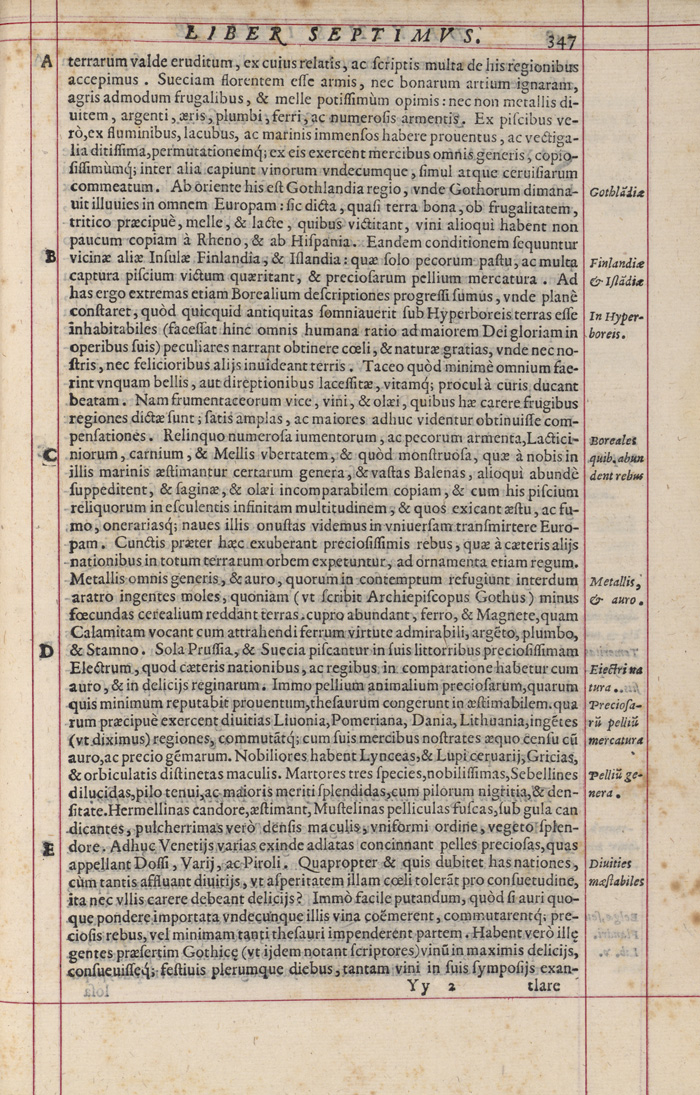 LIBER SEPTIMVS. 347
A terrarum valde eruditum, ex cuius relatis, ac scriptis multa de his regionibus
accepimus. Sueciam florentem esse armis, nec bonarum artium ignaram,
agris admodum frugalibus, & melle potissimùm opimis: nec non metallis di-
uitem, argenti, æris, plumbi, ferri, ac numerosis armentis. Ex piscibus ve-
rò, ex fluminibus, lacubus, ac marinis immensos habere prouentus, ac vectiga-
lia ditissima, permutationemq; ex eis exercent mercibus omnis generis, copio-
sissimùmq; inter alia capiunt vinorum vndecumque, simul atque ceruisiarum
commeatum. Ab oriente his est Gothlandia regio, vnde Gothorum dimana- Gothlādiæ
uit illuuies in omnem Europam: sic dicta, quasi terra bona, ob frugalitatem,
tritico præcipuè, melle, & lacte, quibus victitant, vini alioqui habent non
paucum copiam à Rheno, & ab Hispania. Eandem conditionem sequuntur
B vicinæ aliæ Insulæ Finlandia, & Islandia: quæ solo pecorum pastu, ac multa Finlandiæ
captura piscium victum quæritant, & preciosarum pellium mercatura. Ad & Islādiæ
has ergo extremas etiam Borealium descriptiones progressi sumus, vnde planè
constaret, quòd quicquid antiquitas somniauerit sub Hyperboreis terras esse In Hyper-
inhabitabiles (facessat hinc omnis humana ratio ad maiorem Dei gloriam in boreis.
operibus suis) peculiares narrant obtinere cœli, & naturæ gratias, vnde nec no-
stris, nec felicioribus alijs inuideant terris. Taceo quòd minimè omnium fue-
rint vnquam bellis, aut direptionibus lacessitæ, vitamq; procul à curis ducant
beatam. Nam frumentaceorum vice, vini, & olæi, quibus hæ carere frugibus
regiones dictæ sunt; satis amplas, ac maiores adhuc videntur obtinuisse com-
pensationes. Relinquo numerosa iumentorum, ac pecorum armenta, Lactici- Boreales
C niorum, carnium, & Mellis vbertatem, & quòd monstruosa, quæ à nobis in quib. abun
illis marinis æstimantur certarum genera, & vastas Balenas, alioqui abundè dent rebus
suppeditent, & saginæ, & olæi incomparabilem copiam, & cum his piscium
reliquorum in esculentis infinitam multitudinem, & quos exicant æstu, ac fu-
mo, onerariasq; naues illis onustas videmus in vniuersam transmirtere Euro-
pam. Cunctis præter hæc exuberant preciosissimis rebus, quæ à cæteris alijs
nationibus in totum terrarum orbem expetuntur, ad ornamenta etiam regum.
Metallis omnis generis, & auro, quorum in contemptum refugiunt interdum Metallis,
aratro ingentes moles, quoniam (vt scribit Archiepiscopus Gothus) minus & auro.
fœcundas cerealium reddant terras. cupro abundant, ferro, & Magnete, quam
Calamitam vocant cum attrahendi ferrum virtute admirabili, argēto, plumbo,
D & Stamno. Sola Prussia, & Suecia piscantur in suis littorribus preciosissimam
Electrum, quod cæteris nationibus, ac regibus in comparatione habetur cum Electri na
auro, & in delicijs reginarum. Immo pellium animalium preciosarum, quarum tura.
quis minimum reputabit prouentum, thesaurum congerunt inæstimabilem. qua Preciosa-
rum præcipuè exercent diuitias Liuonia, Pomeriana, Dania, Lithuania, ingētes rū pelliū
(vt diximus) regiones, commutātq; cum suis mercibus nostrates æquo censu cū mercatura
auro, ac precio gēmarum. Nobiliores habent Lynceas, & Lupi ceruarij, Gricias,
& orbiculatis distinetas maculis. Martores tres species, nobilissimas, Sebellines Pelliū ge-
dilucidas, pilo tenui, ac maioris meriti splendidas, cum pilorum nigritia, & den- nera.
sitate. Hermellinas candore, æstimant, Mustelinas pelliculas fuscas, sub gula can
dicantes, pulcherrimas verò densis maculis, vniformi ordine, vegeto splen-
E dore. Adhuc Venetijs varias exinde adlatas concinnant pelles preciosas, quas
appellant Dossi, Varij, ac Piroli. Quapropter & quis dubitet has nationes, Diuities
cùm tantis affluant diuitijs, vt asperitatem illam cœli tolerāt pro consuetudine, mæstabiles
ita nec vllis carere debeant delicijs? Immò facile putandum, quòd si auri quo-
que pondere importata vndecunque illis vina coëmerent, commutarentq; pre-
ciosis rebus, vel minimam tanti thesauri impenderent partem. Habent verò illę
gentes præsertim Gothicę (vt ijdem notant scriptores) vinū in maximis delicijs,
consueuisseq; festiuis plerumque diebus, tantam vini in suis symposijs exan-
Yy 2 tlare